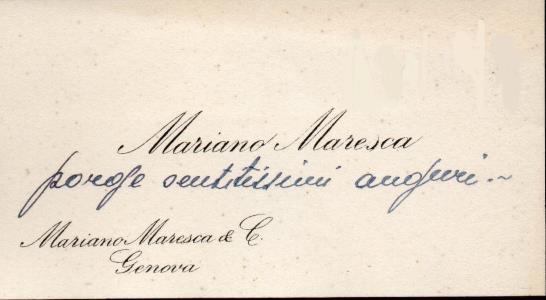 Mariano Maresca
porge sentitissimi auguri.~
Mariano Maresca & C.
Genova